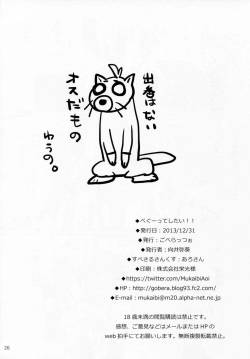 出番はない
オスだもの
ゆうの。
◆べぐーってしたい！！
◆発行日：2013/12/31
◆発行：ごべらっつぉ
◆発行者：向井弥葵
◆すぺさるさんくす：あろさん
◆印刷：株式会社栄光様
◆https://twitter.com/MukaibiAoi
◆HP：http://gobera.blog93.fc2.com/
◆E-mail：mukaibi@m20.alpha-net.ne.jp
18歳未満の閲覧購読は禁止です。
感想、ご意見などはメールまたはHPの
web拍手にてお願いします。無断複製転載禁止。
26